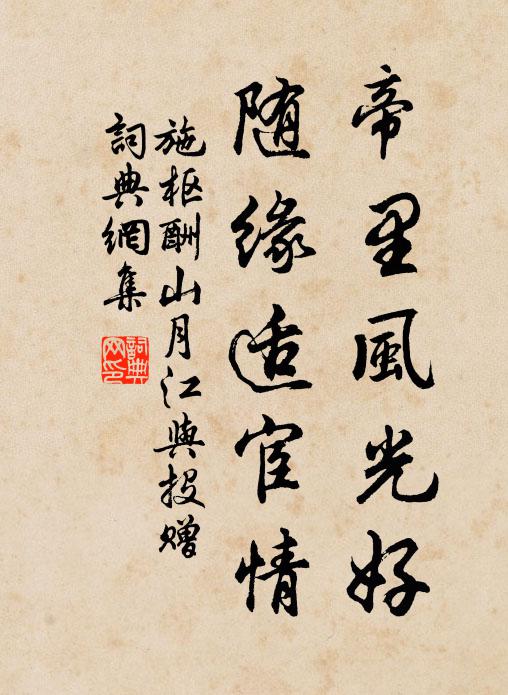 帝里風光好
随緣适宦情
施枢酬山月江與投贈
詞典網集
詞典網印